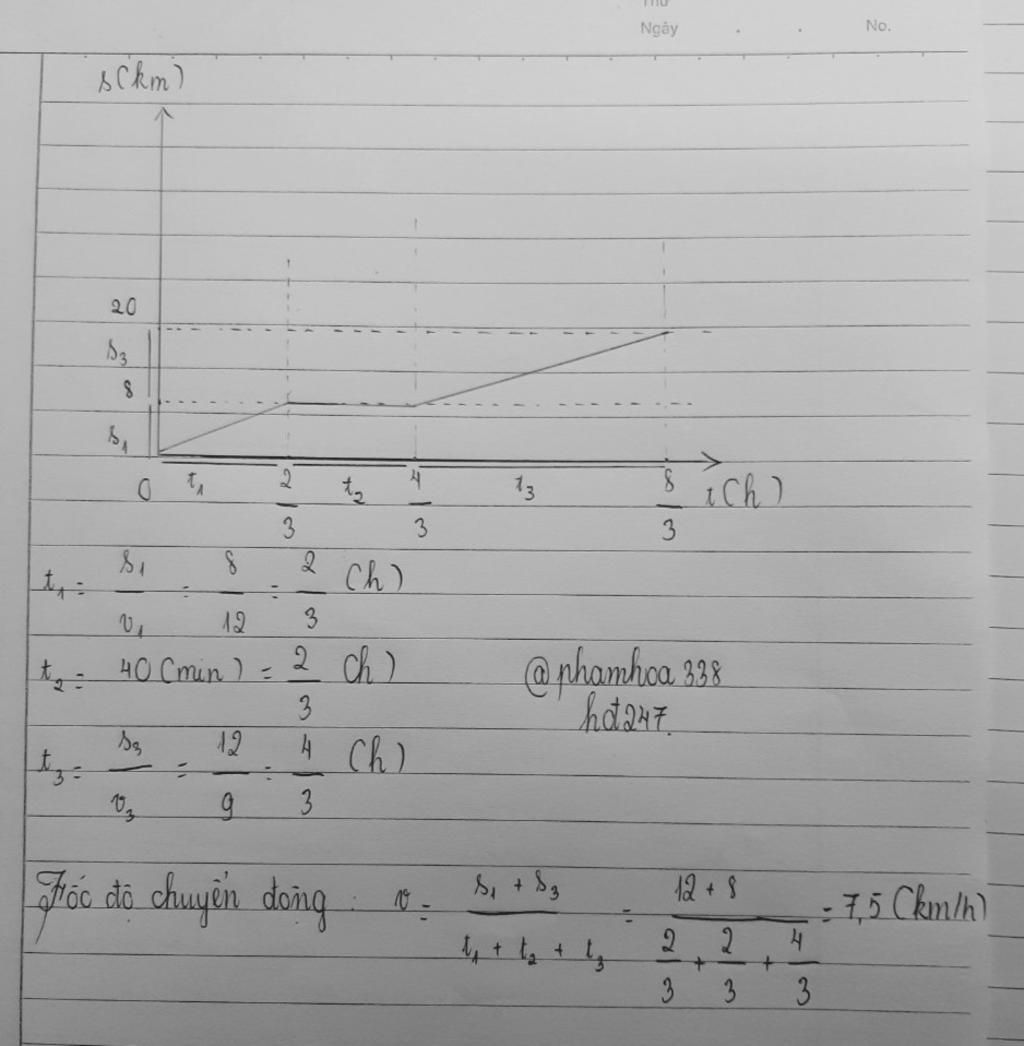 Thứ
Ngày . . No.
s(km)
20
s₃
8
s₁
0 t₁ 2/3 t₂ 4/3 t₃ 8/3 t(h)
t₁ = s₁/v₁ = 8/12 = 2/3 (h)
t₂ = 40(min) = 2/3 (h)
@phamhoa338
hđ247.
t₃ = s₃/v₃ = 12/9 = 4/3 (h)
Tốc độ chuyển động : v = (s₁ + s₃)/(t₁ + t₂ + t₃) = (12 + 8)/(2/3 + 2/3 + 4/3) = 7,5 (km/h)